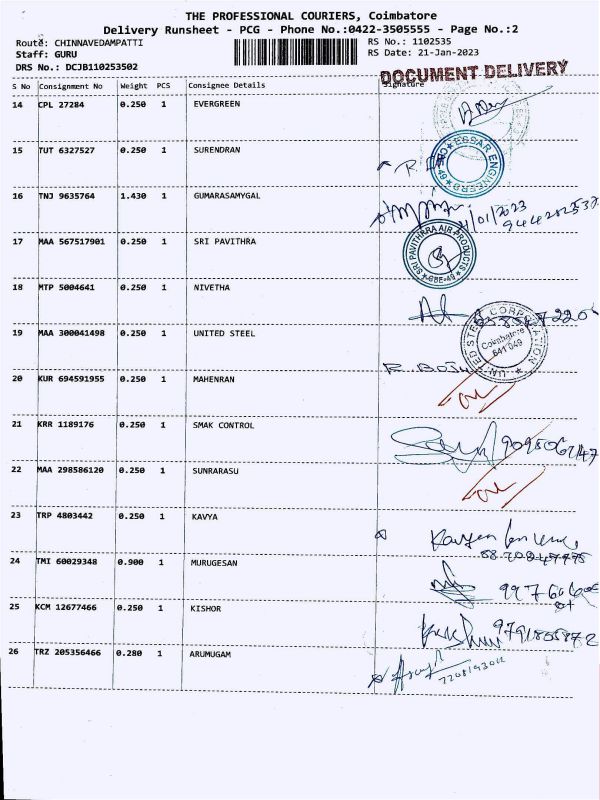 THE PROFESSIONAL COURIERS, Coimbatore
Delivery Runsheet - PCG - Phone No.:0422-3505555 - Page No.:2
Route: CHINNAVEDAMPATTI
RS No.: 1102535
Staff: GURU
RS Date: 21-Jan-2023
DRS No.: DCJB110253502
DOCUMENT DELIVERY
S No Consignment No Weight PCS Consignee Details Signature
14 CPL 27284 0.250 1 EVERGREEN
15 TUT 6327527 0.250 1 SURENDRAN
ESSAR ENGINEERS
16 TNJ 9635764 1.430 1 GUMARASAMYGAL
17 MAA 567517901 0.250 1 SRI PAVITHRA
SRI PAVITHRRA AIR PRODUCTS
CBE-49
18 MTP 5004641 0.250 1 NIVETHA
19 MAA 300041498 0.250 1 UNITED STEEL
UNITED STEEL CORPORATION
Coimbatore
641 049
20 KUR 694591955 0.250 1 MAHENRAN
21 KRR 1189176 0.250 1 SMAK CONTROL
22 MAA 298586120 0.250 1 SUNRARASU
23 TRP 4803442 0.250 1 KAVYA
24 TMI 60029348 0.900 1 MURUGESAN
25 KCM 12677466 0.250 1 KISHOR
26 TRZ 205356466 0.280 1 ARUMUGAM